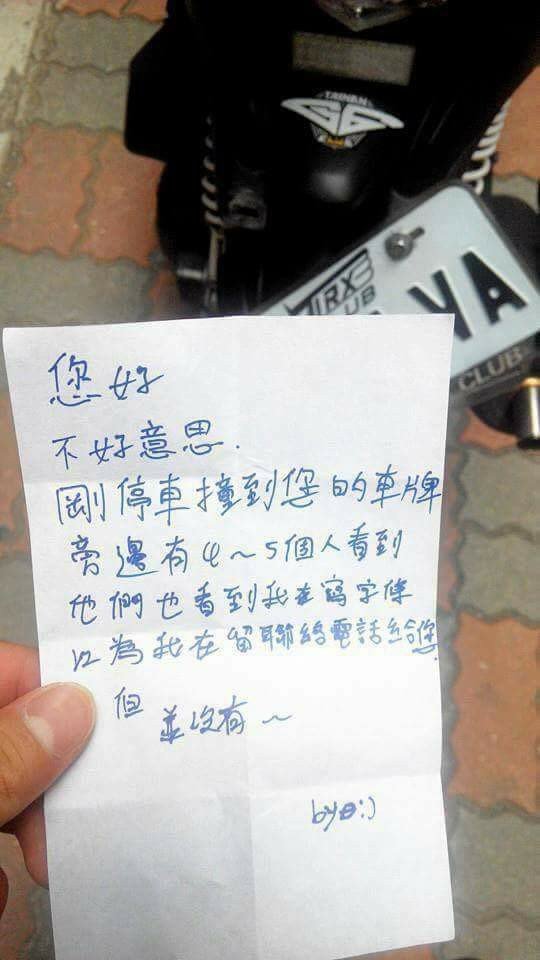 TAINAN
G6
ZIRX
CLUB
VA
CLUB
您好
不好意思.
剛停車撞到您的車牌
旁邊有4～5個人看到
他們也看到我在寫字條
以為我在留聯絡電話給您.
但並沒有～
by θ:)